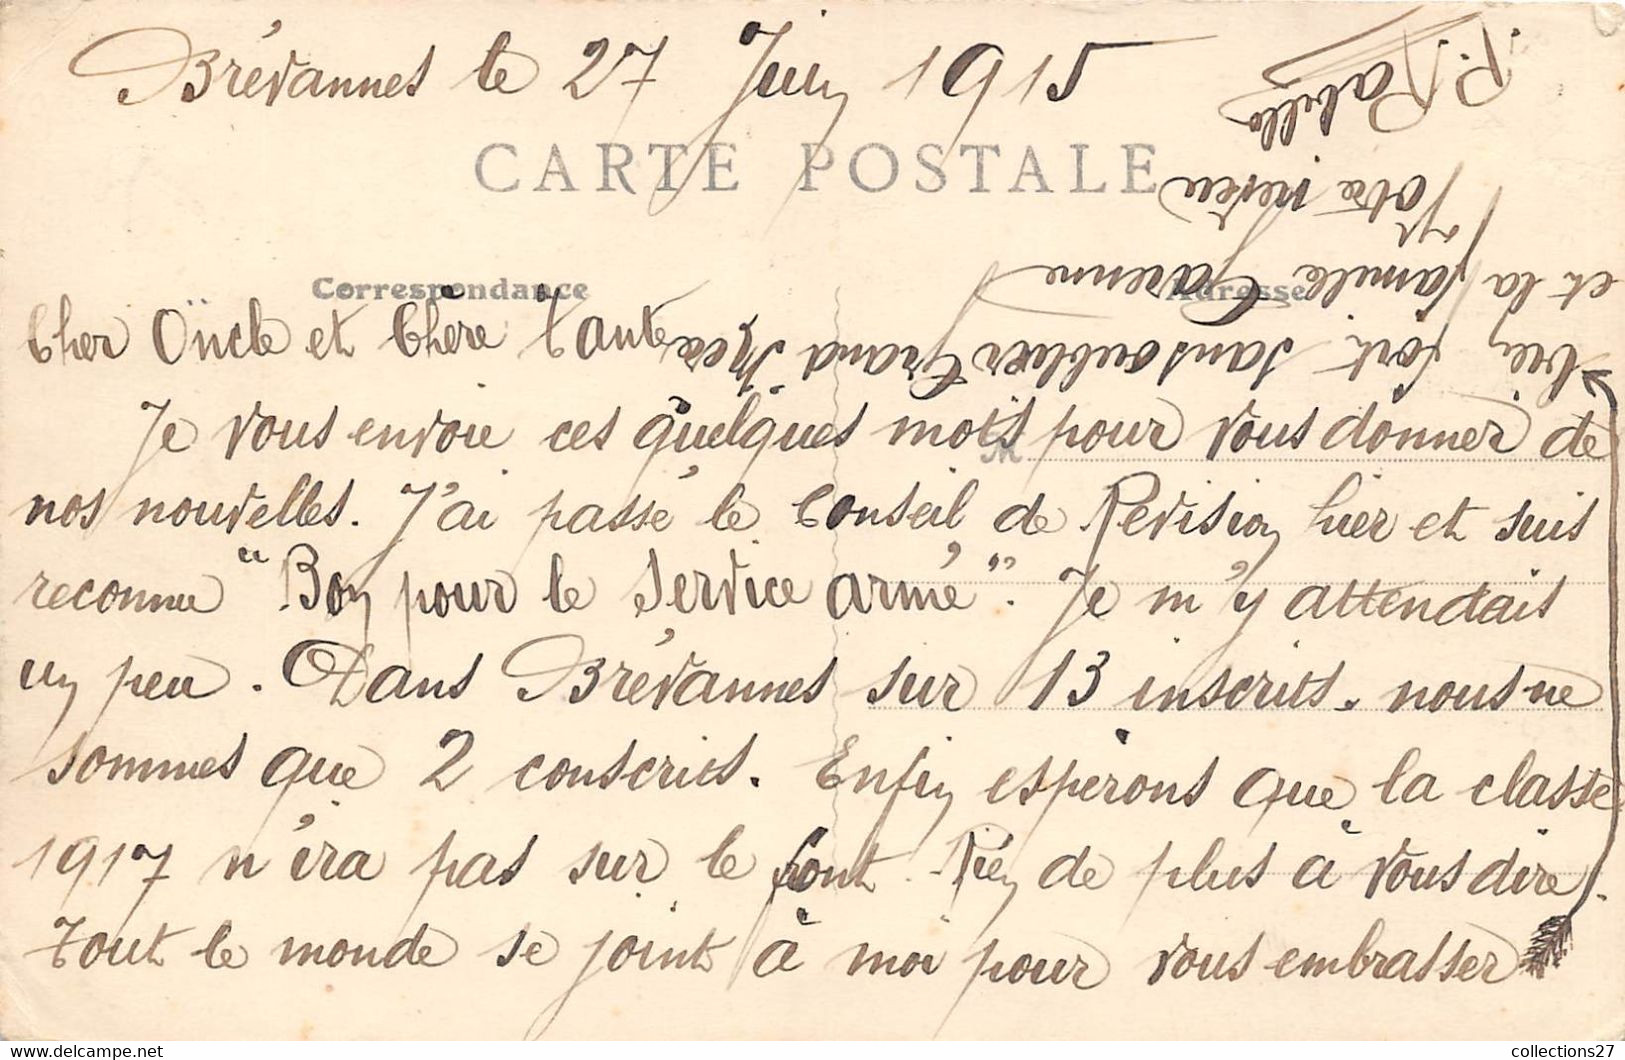 Brévannes le 27 Juin 1915
CARTE POSTALE
Correspondance
Adresse
Cher Oncle et Chère Tante
Je vous envoie ces quelques mots pour vous donner de
nos nouvelles. J'ai passé le Conseil de Revision hier et suis
reconnu "Bon pour le Service armé". Je m'y attendais
un peu. Dans Brévannes sur 13 inscrits. nous ne
sommes que 2 conscrits. Enfin espérons que la classe
1917 n'ira pas sur le front Rien de plus à vous dire.
Tout le monde se joint à moi pour vous embrasser
bien fort sans oublier Grand Mère
et la famille Garenne
Votre neveu
P. Rabillo
collections27